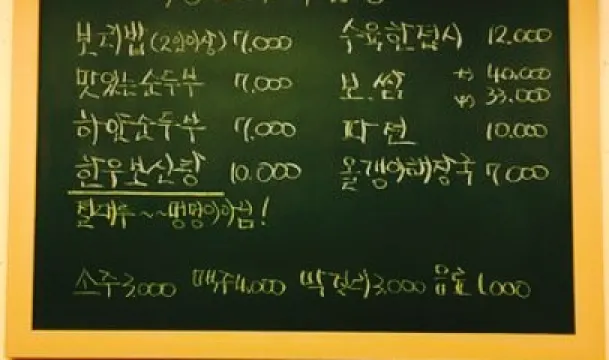 보리밥 (2인이상) 7,000 수육한접시 12.000
맛있는순두부 7,000 보쌈 大) 40.000
中) 33.000
하얀순두부 7,000 파전 10.000
한우보신탕 10.000 올갱이해장국 7,000
절대루~~멍멍이아님!
소주3,000 맥주4,000 막걸리3,000 음료1,000